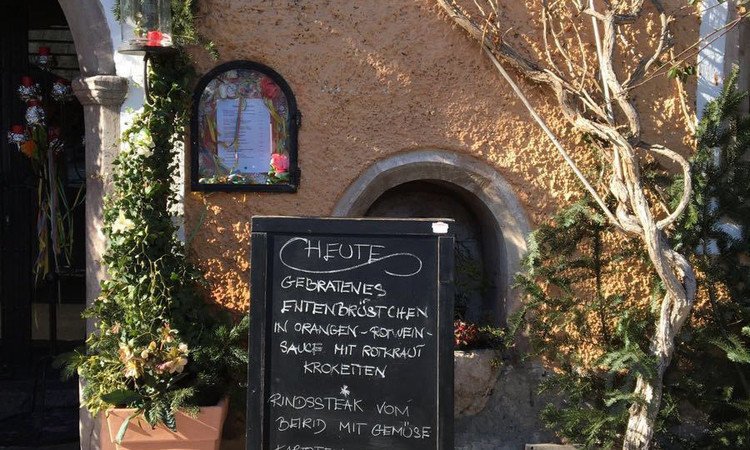 HEUTE
GEBRATENES
ENTENBRÜSTCHEN
IN ORANGEN-ROTWEIN-
SAUCE MIT ROTKRAUT
KROKETTEN
RINDSSTEAK VOM
BEIRID MIT GEMÜSE